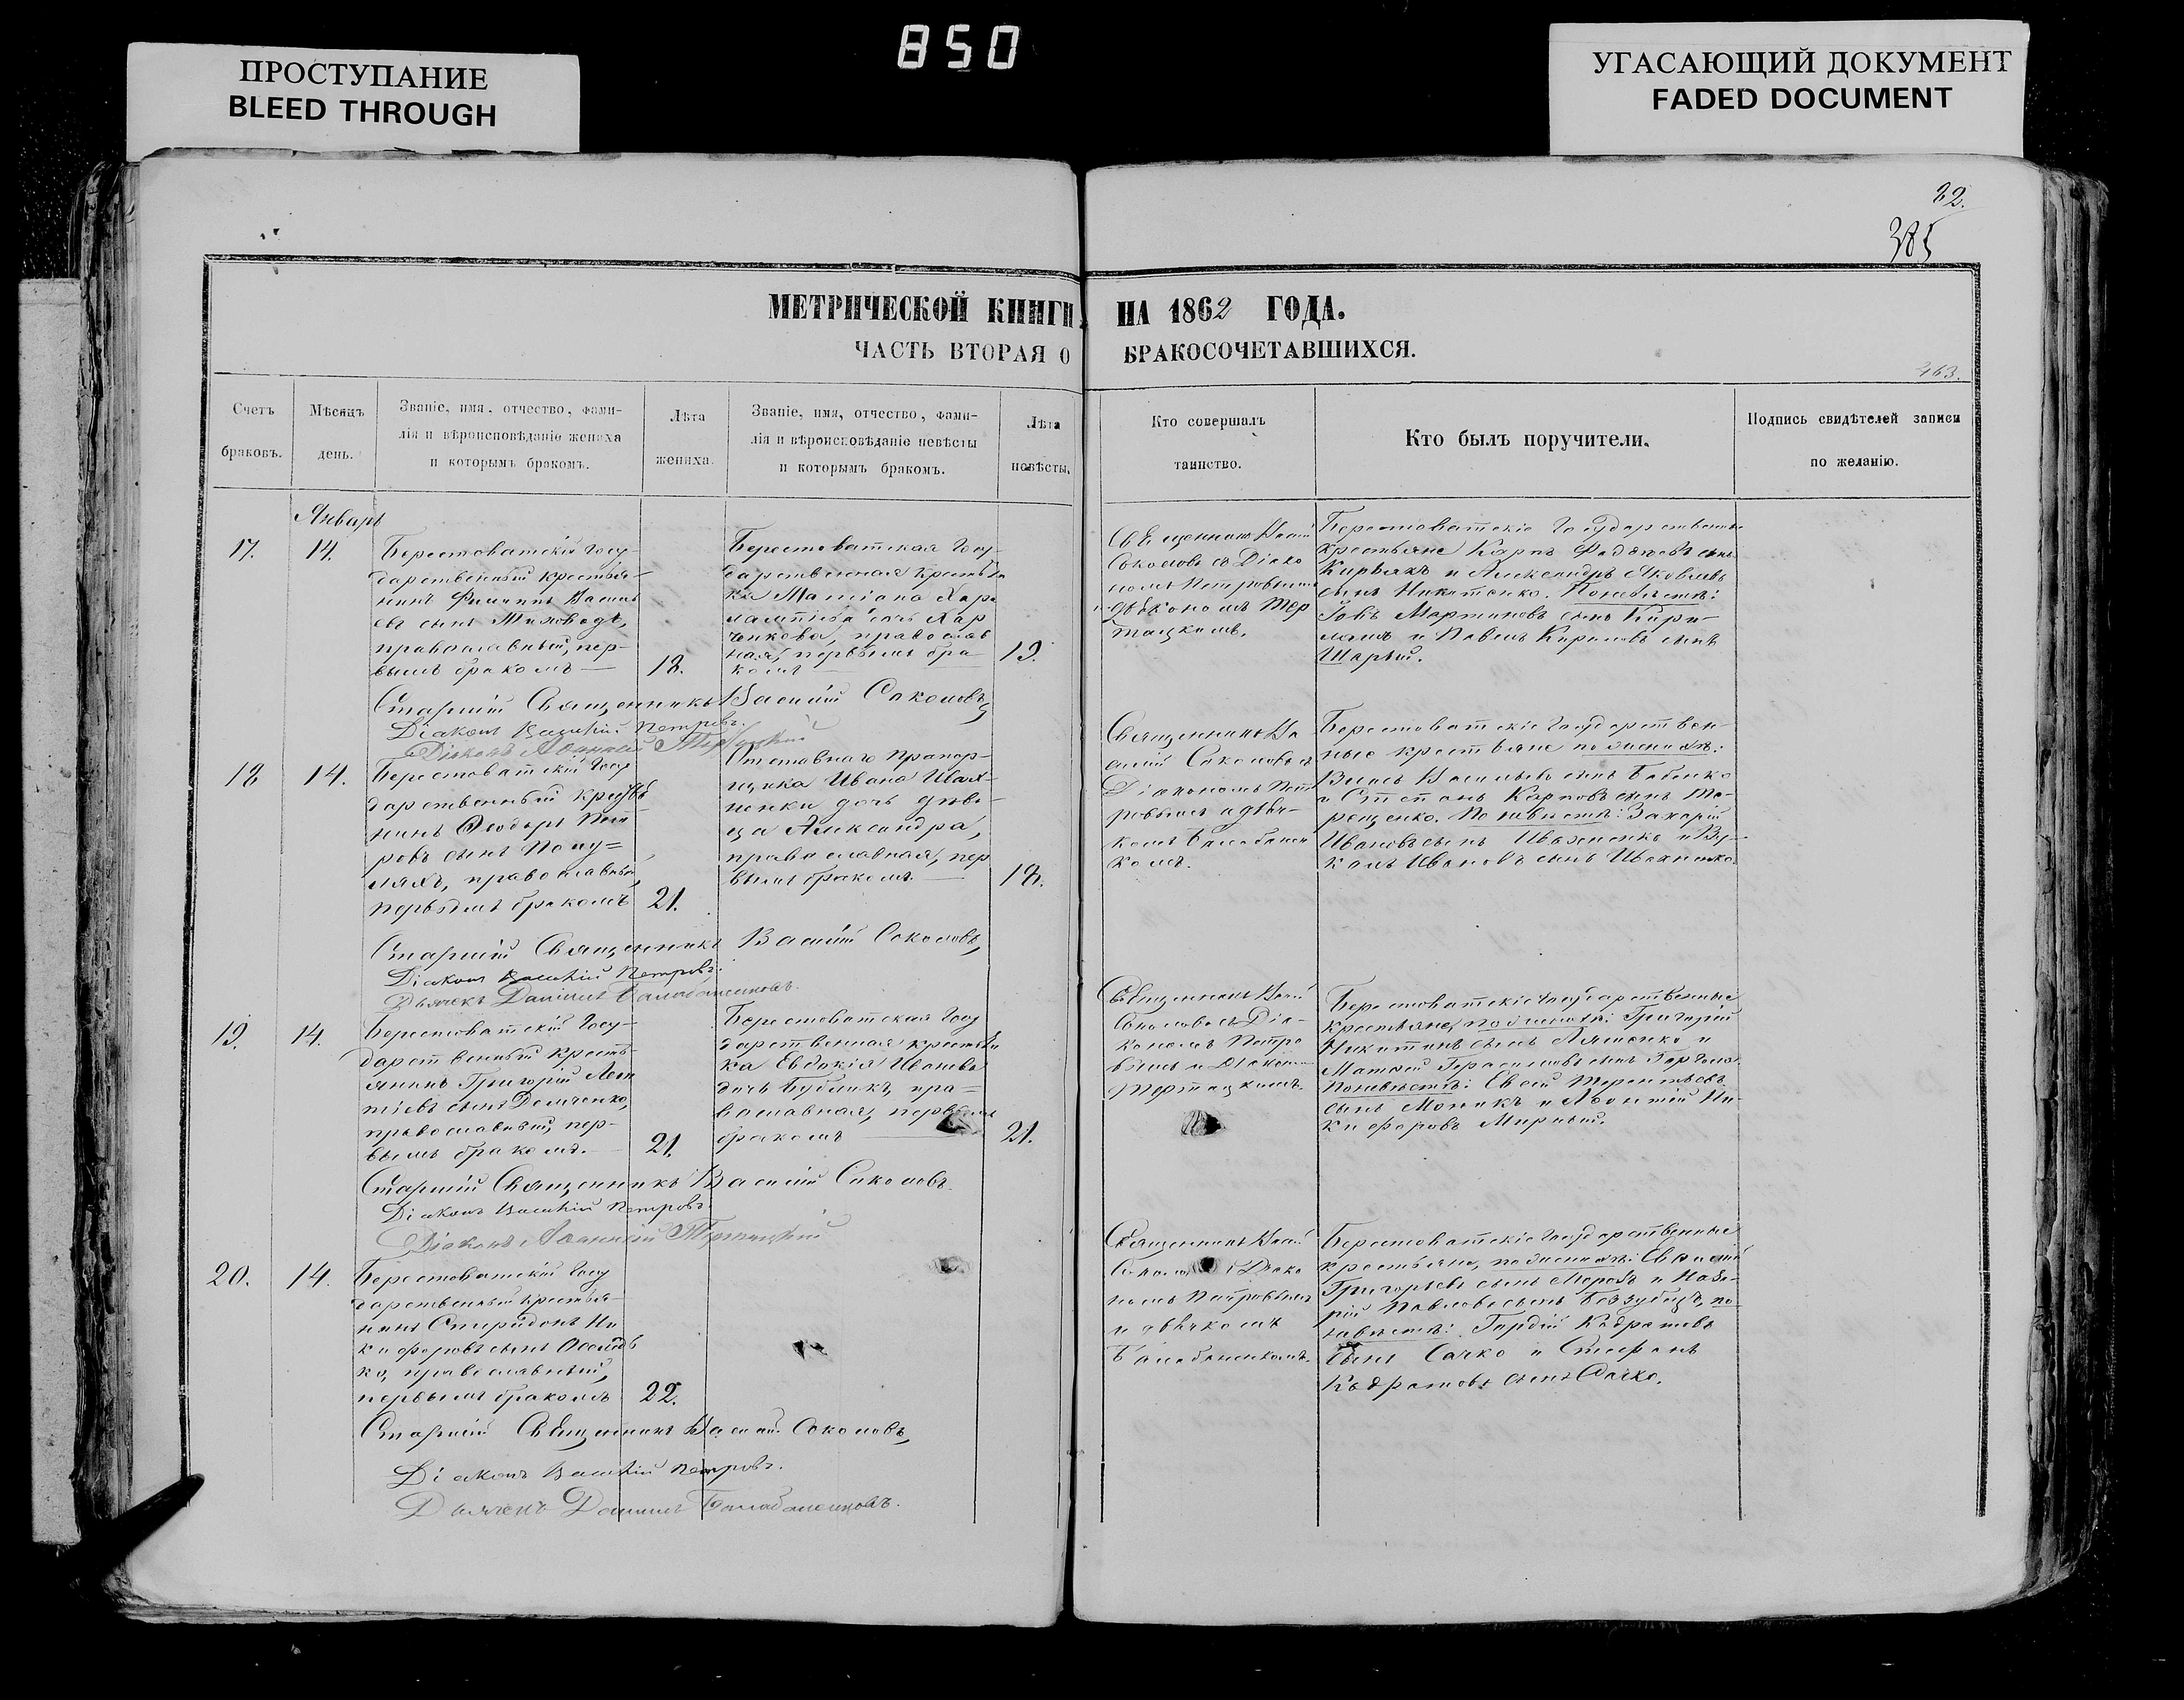 850
ПРОСТУПАНИЕ
BLEED THROUGH
УГАСАЮЩИЙ ДОКУМЕНТ
FADED DOCUMENT
22.
385
МЕТРИЧЕСКОЙ КНИГИ НА 1862 ГОДА.
ЧАСТЬ ВТОРАЯ О БРАКОСОЧЕТАВШИХСЯ.
463.
Счетъ браковъ.
Мѣсяцъ день.
Званіе, имя, отчество, фами-
лія и вѣроисповѣданіе жениха
и которымъ бракомъ.
Лѣта жениха.
Званіе, имя, отчество, фами-
лія и вѣроисповѣданіе невѣсты
и которымъ бракомъ.
Лѣта невѣсты.
Кто совершалъ таинство.
Кто былъ поручители.
Подпись свидѣтелей записи
по желанію.
Январь
17.
14.
Берестоватскій Госу-
дарственный крестья-
нинъ Филиппъ Василь
евъ сынъ
православный, пер-
вымъ бракомъ
18.
Берестоватская Госу-
дарственная крестьян
ка
дочь Хар
ченкова, православ
ная, первымъ бра
комъ
19.
Священникъ Васи
Соколовъ съ Діако
номъ Петровымъ
и дьякономъ Тер
тацкимъ.
Берестоватскіе Государственные
крестьяне Карпъ Фадѣевъ сынъ
Кирьякъ и Александръ Яковлевъ
сынъ Никитенко. По невѣстѣ:
Іовъ Мартиновъ сынъ Кири-
и Павелъ Кириловъ сынъ
Шарый.
Старшій Священникъ Василій Соколовъ,
Діаконъ Василій Петровъ.
Діаконъ Тертацкій
18
14.
Берестоватскій Госу
дарственный крестья
нинъ Ѳеодоръ Пет
ровъ сынъ Полу=
ляхъ, православный,
первымъ бракомъ
21.
Отставнаго Прапор-
щика Ивана Ивах-
ненки дочь дѣви-
ца Александра,
православная, пер
вымъ бракомъ.
18.
Священникъ Ва
силій Соколовъ съ
Діакономъ Пет
ровымъ и дьяч-
комъ Балабаненко
комъ.
Берестоватскіе Государствен-
ные крестьяне по женихѣ:
Власъ Васильевъ сынъ Бабенко
и Степанъ Карповъ сынъ Те-
рещенко. По невѣстѣ: Захарій
Ивановъ сынъ Ивахненко и Ву-
колъ Ивановъ сынъ Ивахненко.
Старшій Священникъ Василій Соколовъ,
Діаконъ Василій Петровъ.
Дьячекъ Даніилъ Балабаненковъ.
19.
14.
Берестоватскій Госу-
дарственный кресть-
янинъ Григорій Леон
тіевъ сынъ Демченко,
православный, пер-
вымъ бракомъ.
21.
Берестоватская Госу
дарственная крестьян
ка Евдокія Иванова
дочь Бубликъ, пра-
вославная, первымъ
бракомъ
21.
Священникъ Васи
Соколовъ съ Діа-
кономъ Петро
вымъ и Діакономъ
Тертацкимъ.
Берестоватскіе Государственные
крестьяне, по женихѣ: Григорій
Никитинъ сынъ Ляшенко и
Матвей Герасимовъ сынъ
По невѣстѣ: Евсей Терентьевъ
сынъ и Леонтій Ни-
кифоровъ Мирный.
Старшій Священникъ Василій Соколовъ.
Діаконъ Василій Петровъ.
Діаконъ Тертацкій
20.
14.
Берестоватскій Госу
дарственный крестья-
нинъ Спиридонъ Ни
кифоровъ сынъ
ко, православный,
первымъ бракомъ
22.
Священникъ Васи
Діако
номъ Петровымъ
и дьячкомъ
Балабаненкомъ.
Берестоватскіе Государственные
крестьяне, по женихѣ:
Григорьевъ сынъ Морозъ и Наза-
рій Павловъ сынъ Беззубецъ, по
невѣстѣ: Гордій Кодратовъ
сынъ Сачко и Стефанъ
Кодратовъ сынъ Сачко.
Старшій Священникъ Василій Соколовъ,
Діаконъ Василій Петровъ.
Дьячекъ Даніилъ Балабаненковъ.